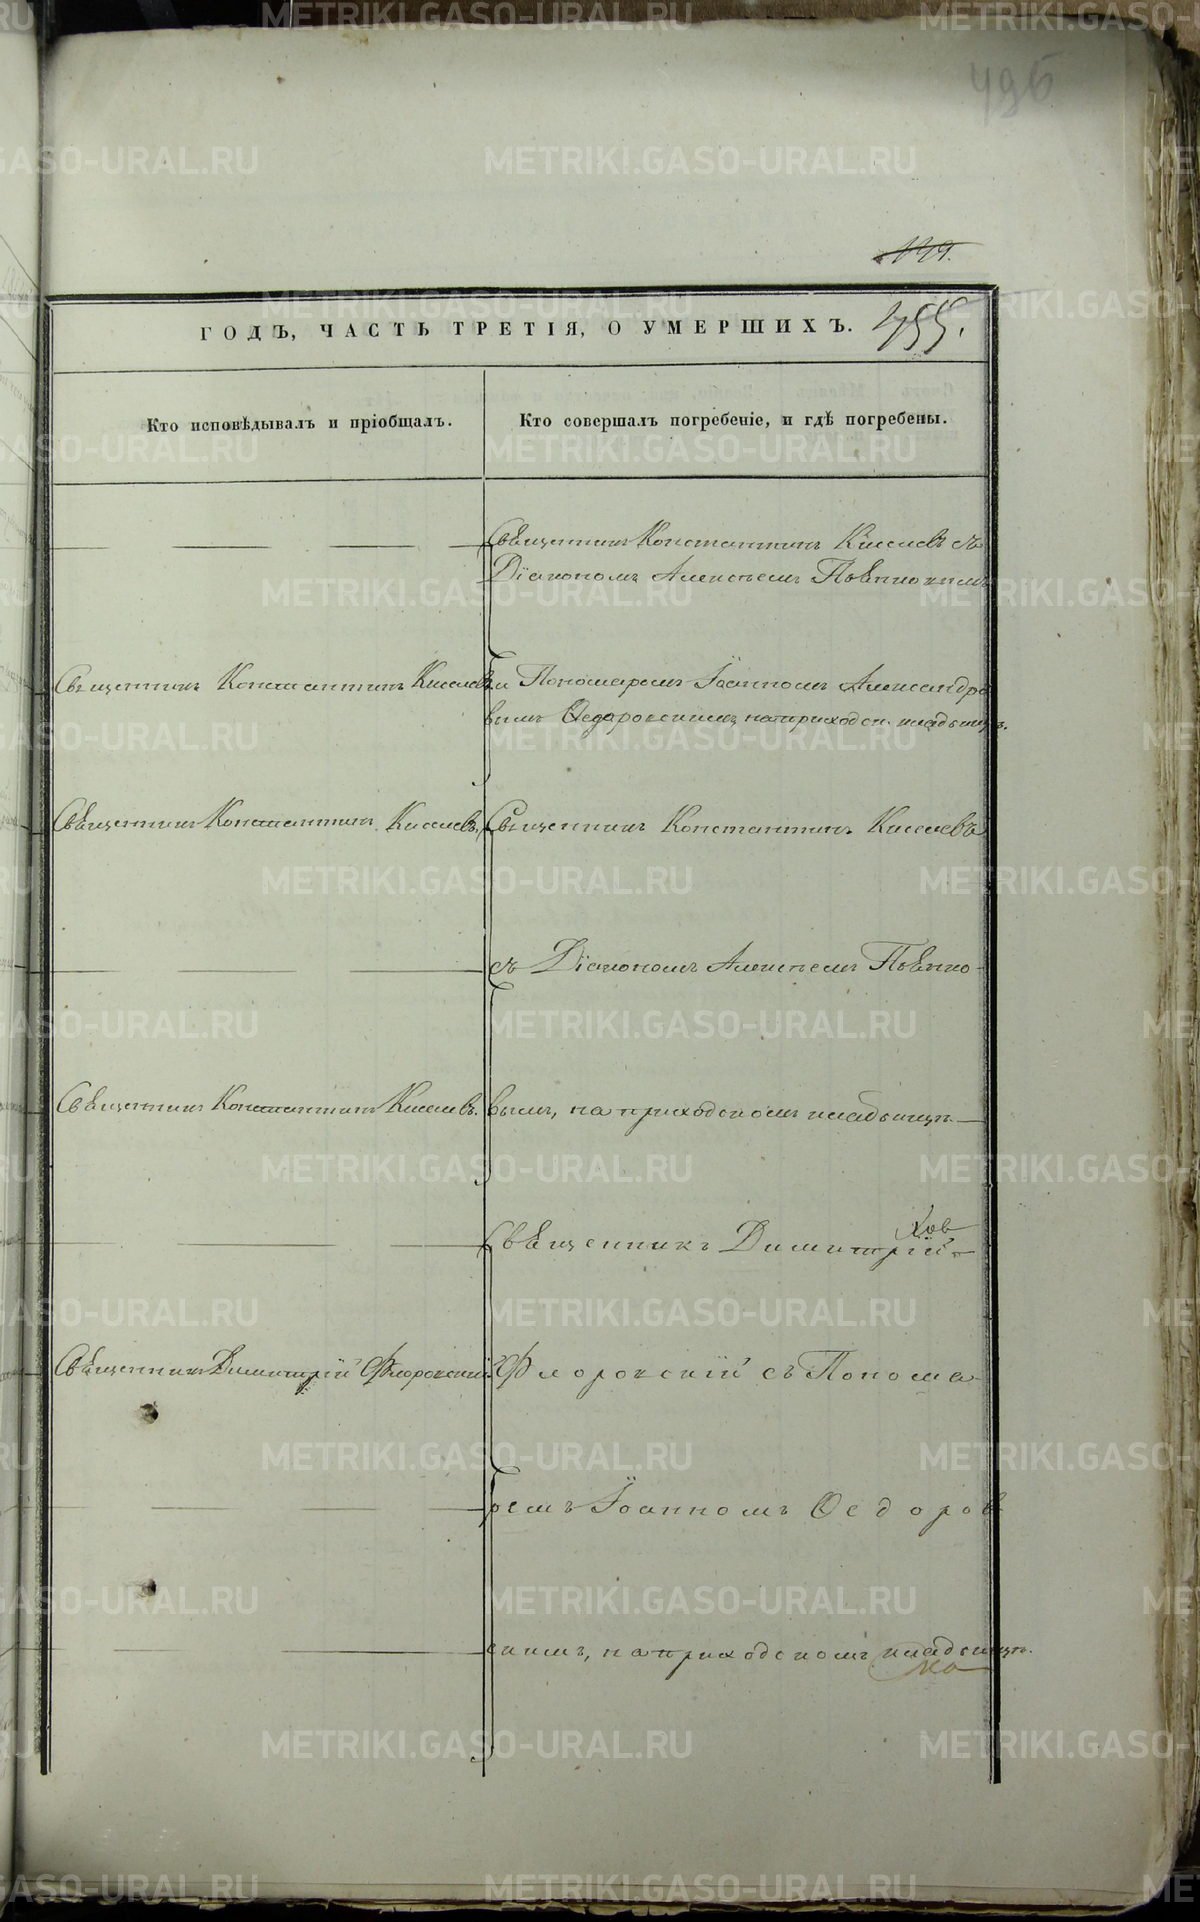 495.
ГОДЪ, ЧАСТЬ ТРЕТІЯ, О УМЕРШИХЪ.
Кто исповѣдывалъ и пріобщалъ.
Кто совершалъ погребеніе, и гдѣ погребены.
Священникъ Константинъ Киселевъ съ
Діакономъ Алексѣемъ
Священникъ Константинъ Киселевъ
и Пономаремъ Іоанномъ Александро
вымъ Ѳедоровскимъ, на приходск. кладбищѣ.
Священникъ Константинъ Киселевъ.
Священникъ Константинъ Киселевъ
съ Діакономъ Алексѣемъ
Священникъ Константинъ Киселевъ.
вымъ, на приходскомъ кладбищѣ.
Священникъ Димитрій
Священникъ Димитрій Флоровскій
Флоровскій съ Понома
ремъ Іоанномъ Ѳедоров
скимъ, на приходскомъ кладбищѣ.
METRIKI.GASO-URAL.RU